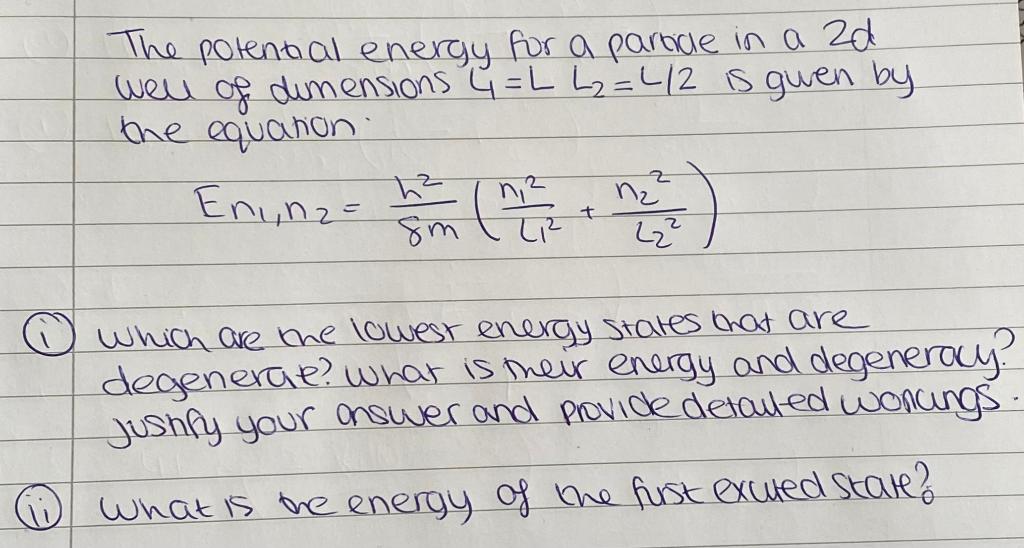 The potential energy for a particle in a 2d
well of dimensions L₁=L L₂=L/2 is given by
the equation:
En₁,n₂ = h²/8m (n₁²/L₁² + n₂²/L₂²)
(i) which are the lowest energy states that are
degenerate? what is their energy and degeneracy?
justify your answer and provide detailed workings.
(ii) what is the energy of the first excited state?